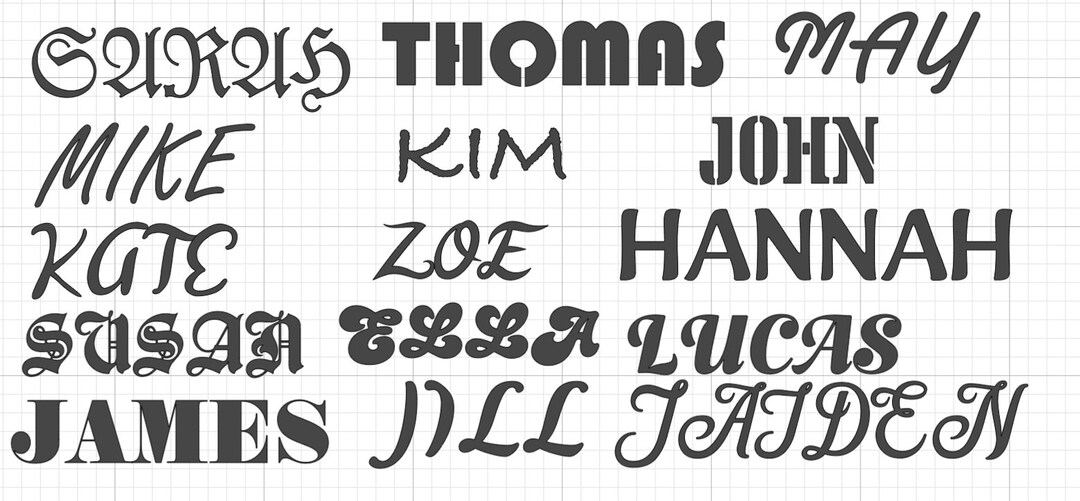 SARAH THOMAS MAY
MIKE KIM JOHN
KATE ZOE HANNAH
SUSAN ELLA LUCAS
JAMES JILL JAIDEN